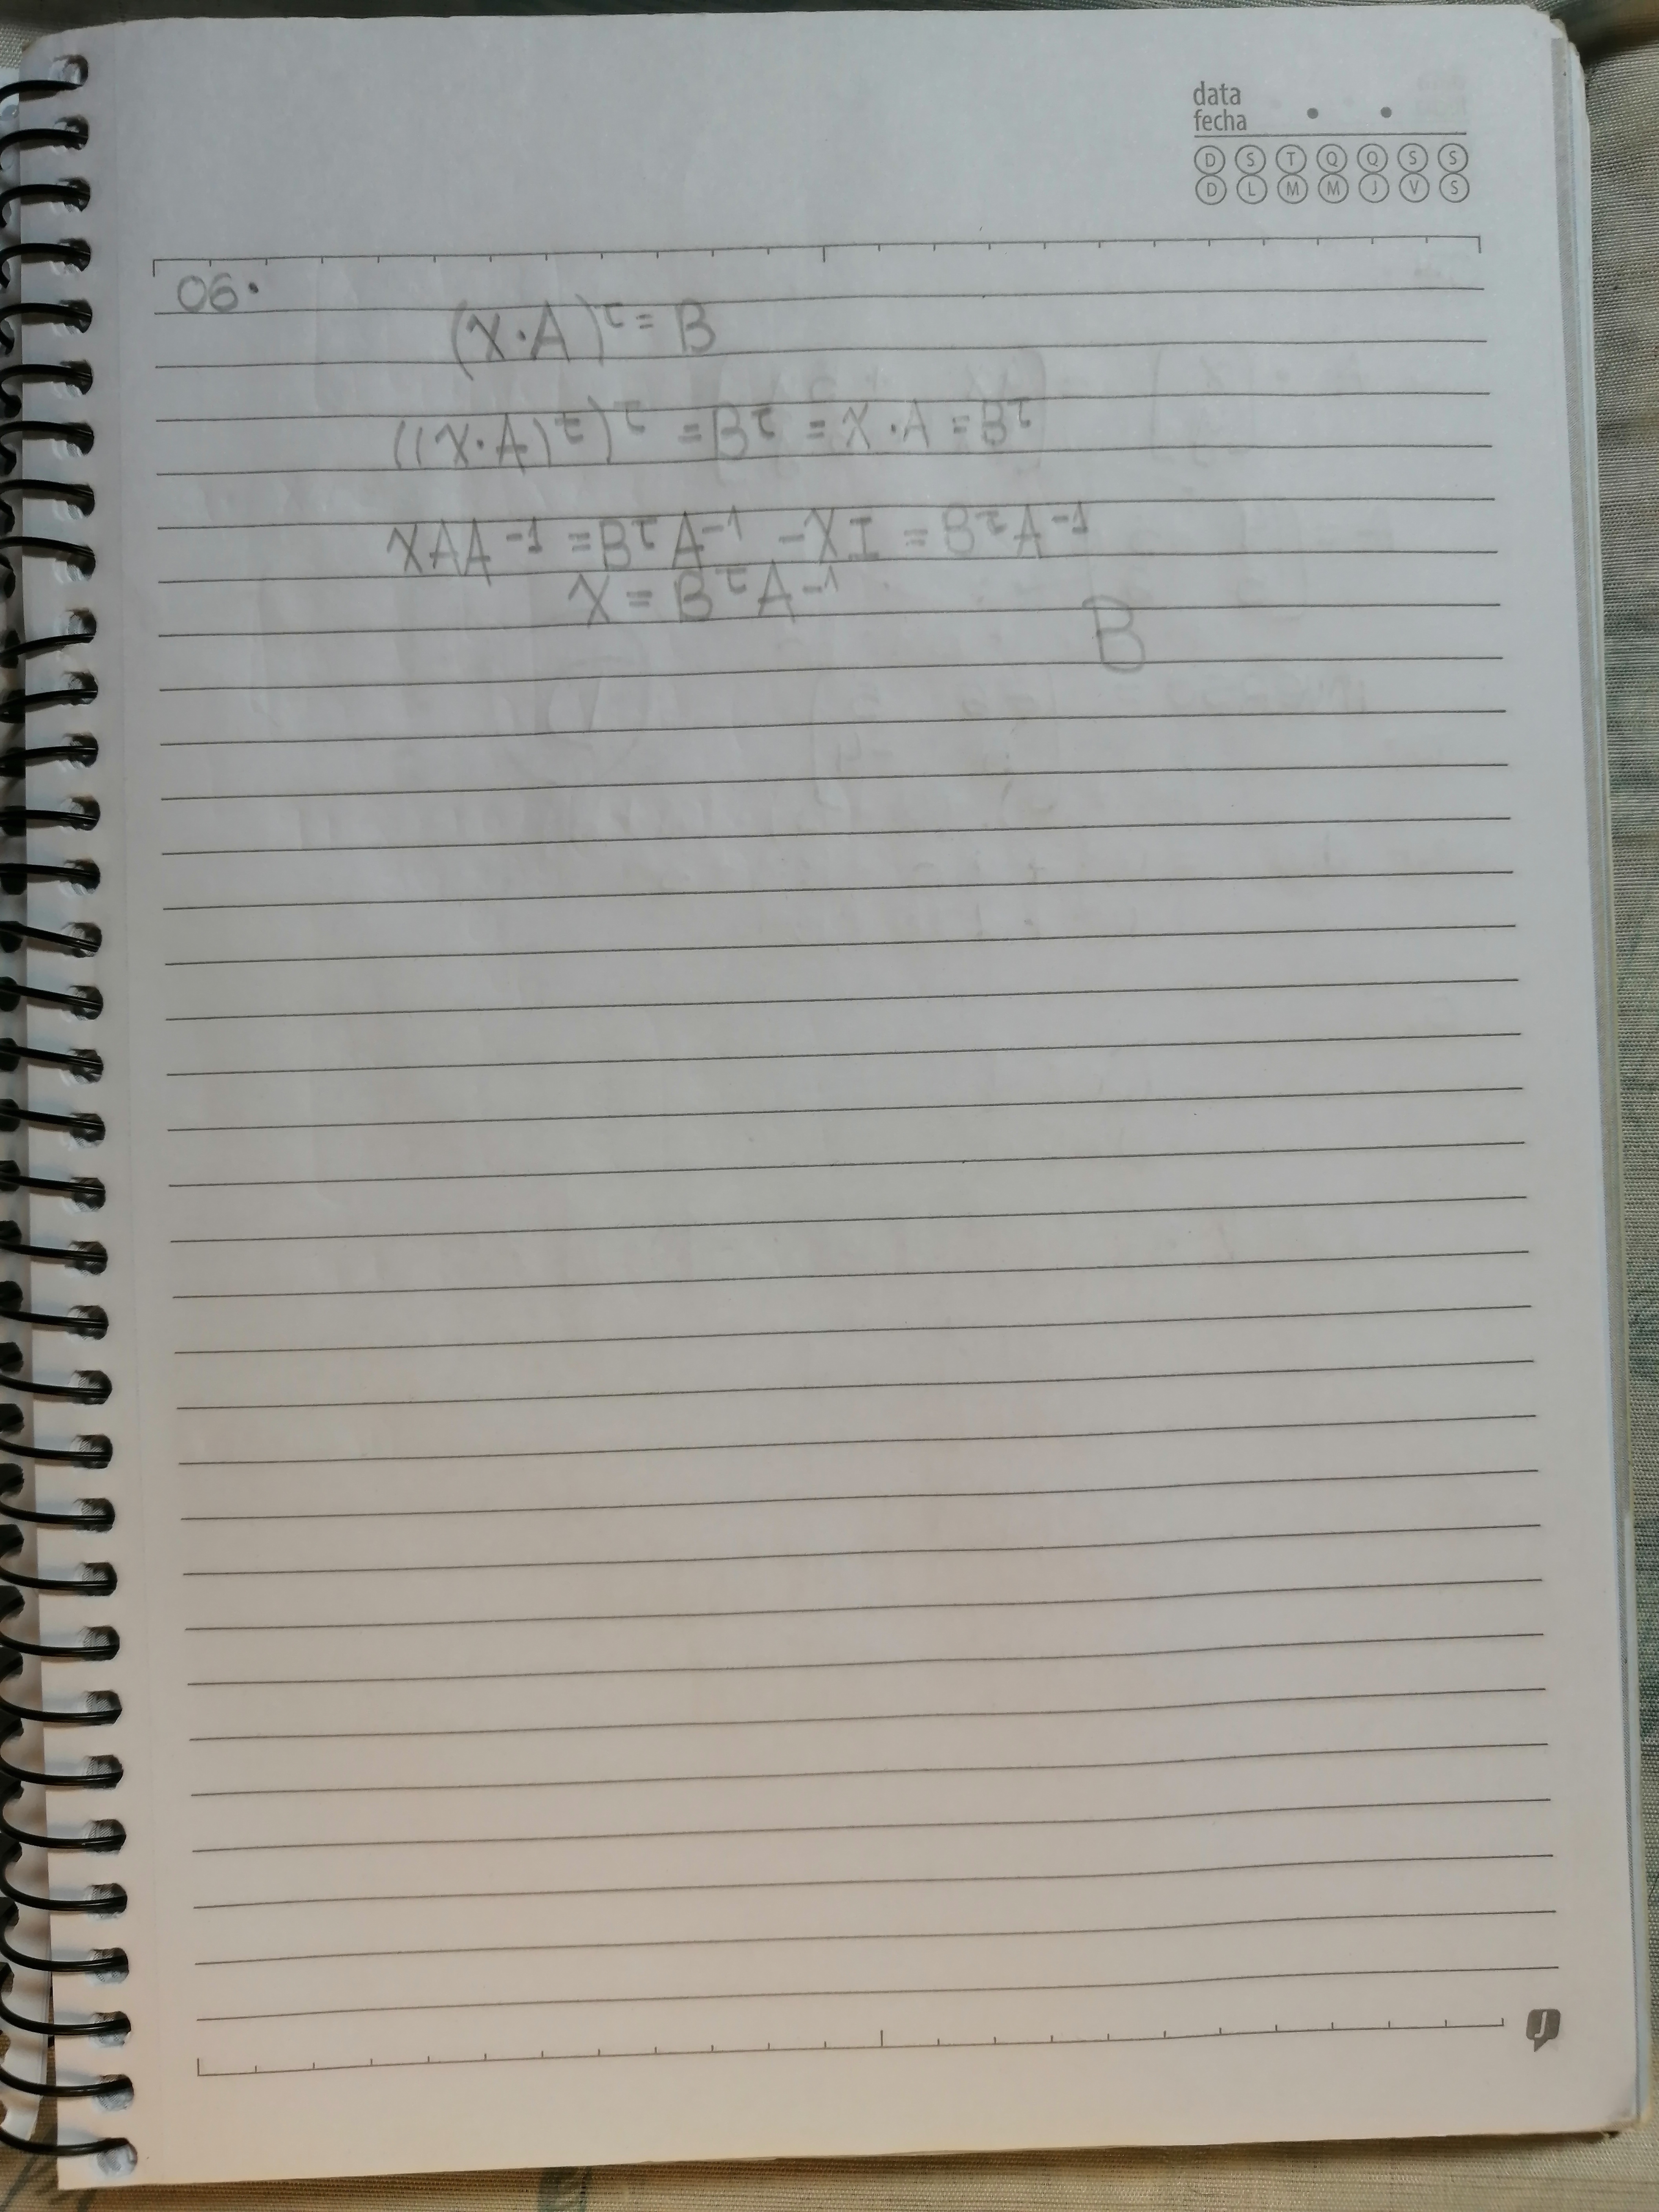 data
fecha
D S T Q Q S S
D L M M J V S
06.
(X·A)ᵗ = B
((X·A)ᵗ)ᵗ = Bᵗ = X·A = Bᵗ
XAA⁻¹ = BᵗA⁻¹ - XI = BᵗA⁻¹
X = BᵗA⁻¹
B